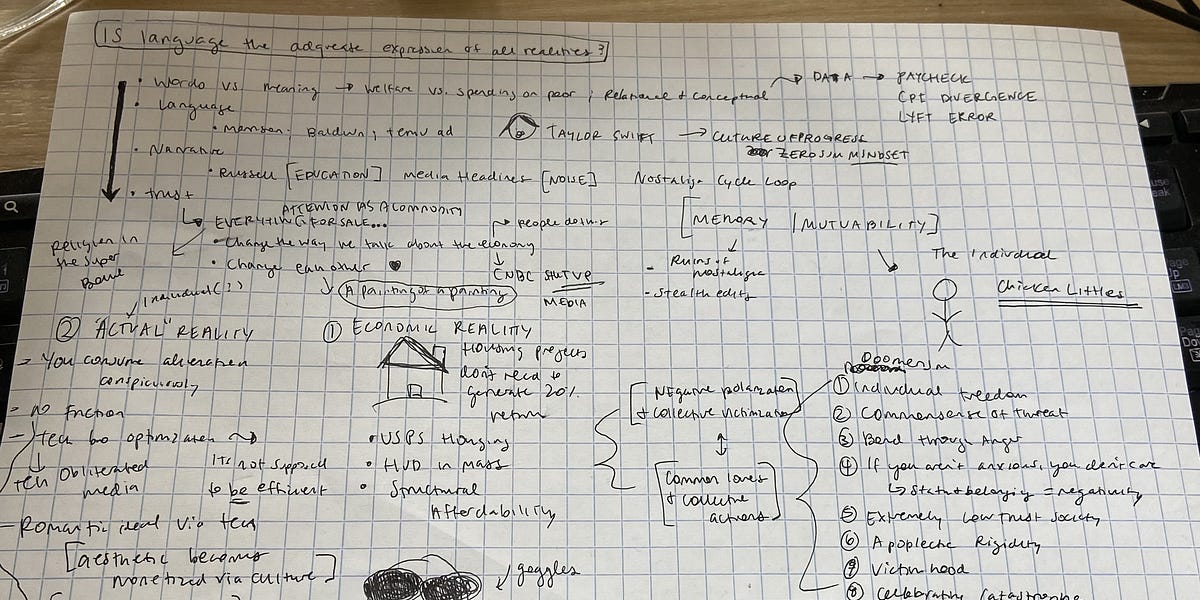 Is language the adequate expression of all realities?
• Words vs. meaning → welfare vs. spending on poor ; Relational + conceptual → DATA → PAYCHECK
CPI DIVERGENCE
LYFT ERROR
• Language
• Baldwin ; temu ad
TAYLOR SWIFT → CUTURE OF PROGRESS
ZERO SUM MINDSET
• Narrative
• Russell [EDUCATION] Media Headlines [NOISE] Nostalgia Cycle Loop
• trust
ATTENTION AS A COMMODITY
↳ EVERYTHING IS FOR SALE...
→ people do this
• Change the way we talk about the economy
• Change each other
↓ CNBC
MEDIA
A painting of a painting
Religion in
the Super
Bowl
[MEMORY / MUTUABILITY]
- Ruins of
nostalgia
- Stealth edits
The Individual
Chicken Littles
individual(?)
② "ACTUAL" REALITY
→ You consume alienation
conspicuously
- no friction
- tech bro optimization
↓ Obliterated
tech media
ITs not supposed
to be efficient
- Romantic ideal via tech
[aesthetic becomes
monetized via culture]
① ECONOMIC REALITY
Housing projects
don't need to
generate 20%
return
• USPS Housing
• HUD in mass
• Structural
Affordability
goggles
[Negative polarization
+ collective victimization]
↕
[Common loves
+ collective
actions]
Doomerism
① Individual freedom
② Commonsense of threat
③ Bond through Anger
④ If you aren't anxious, you don't care
↳ Status + belonging = negativity
⑤ Extremely low trust society
⑥ Apoplectic Rigidity
⑦ Victimhood
⑧ Celebrating Catastrophe